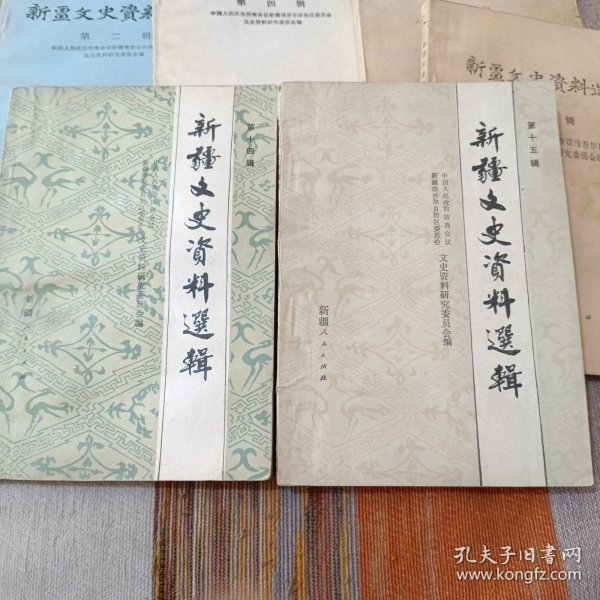 新疆文史資料
第二辑
中国人民政治协商会议新疆维吾尔自治
文史资料研究委员会编
第四辑
中国人民政治协商会议新疆维吾尔自治区委员会
文史资料研究委员会编
新疆文史資料選
辑
新疆维吾尔自
究委员会编
新疆文史資料選輯
第十四辑
文史资料研究委员会编
新疆人民出版社
新疆文史資料選輯
第十五辑
中国人民政治协商会议
新疆维吾尔自治区委员会
文史资料研究委员会编
新疆人民出版社
孔夫子旧书网
www.kongfz.com